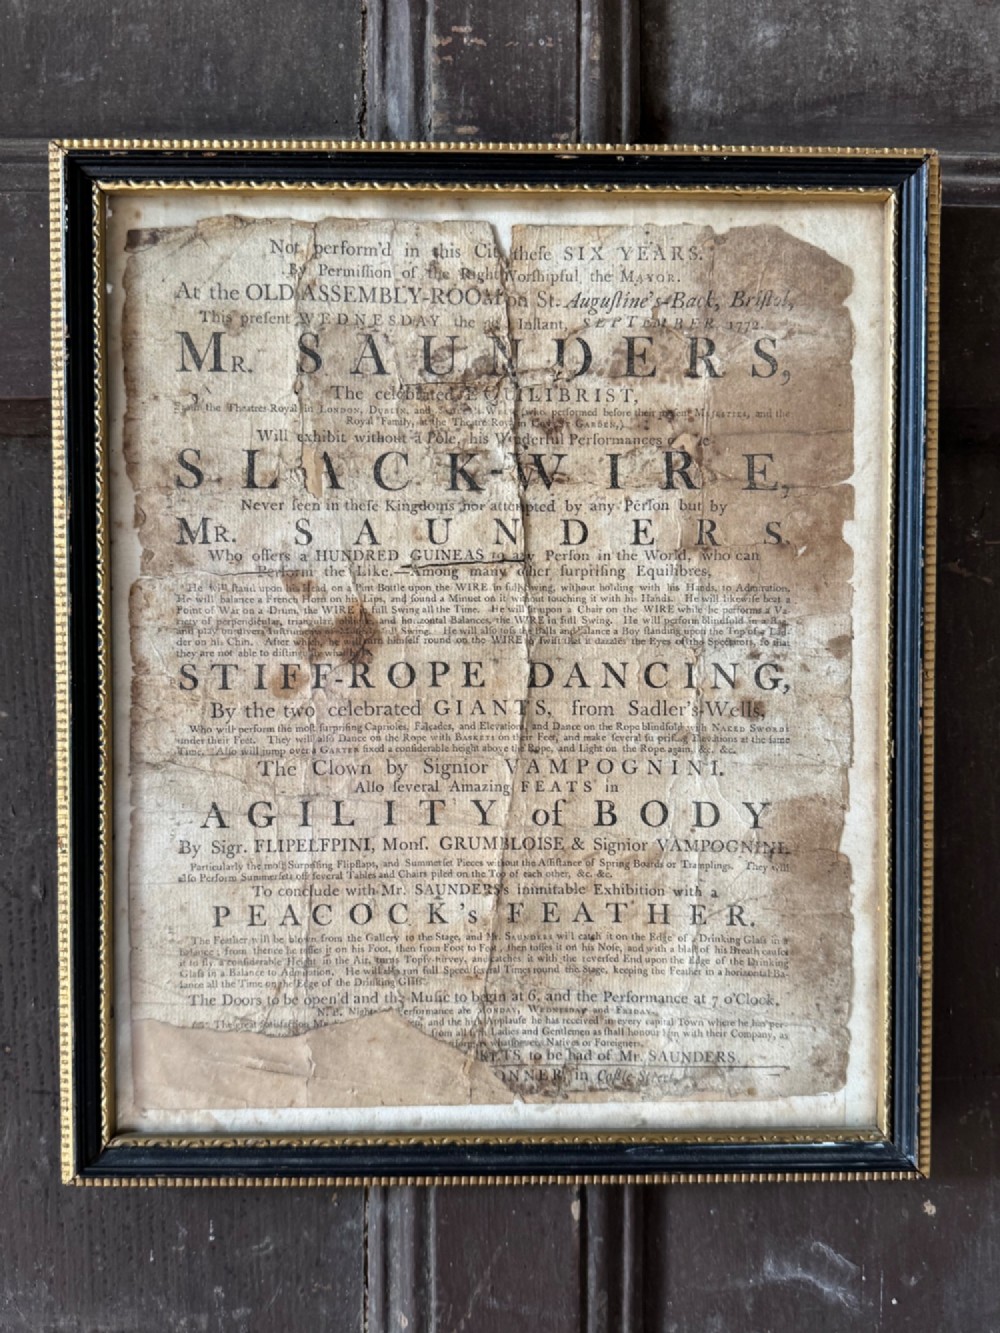 Not perform'd in this City theſe SIX YEARS.
By Permiſſion of the Right Worſhipful the MAYOR.
At the OLD ASSEMBLY-ROOM on St. Auguſtine's-Back, Briſtol,
This preſent WEDNESDAY the Inſtant, SEPTEMBER 1772
MR. SAUNDERS,
The celebrated EQUILIBRIST,
the Theatres Royal in LONDON, DUBLIN, and performed before their MAJESTIES, and the
Royal Family, at the Theatre Royal in GARDEN,)
Will exhibit without a Pole, his Wonderful Performances
SLACK-WIRE,
Never ſeen in theſe Kingdoms nor attempted by any Perſon but by
MR. SAUNDERS.
Who offers a HUNDRED GUINEAS to any Perſon in the World, who can
Perform the Like.—Among many other ſurpriſing Equilibres,
He will ſtand upon his Head, on a Pint Bottle upon the WIRE in full Swing, without holding with his Hands, to Admiration.
He will balance a French Horn on his Lips, and ſound a Minuet on it without touching it with his Hands. He will likewiſe beat a
Point of War on a Drum, the WIRE in full Swing all the Time. He will ſit upon a Chair on the WIRE while he performs a Va-
riety of perpendicular, triangular, and horizontal Balances, the WIRE in full Swing. He will perform blindfold in a
and play on divers Inſtruments full Swing. He will alſo toſs the Balls and balance a Boy ſtanding upon the Top of a Lad-
der on his Chin. After which, he will turn himſelf round on the WIRE ſo ſwift that it dazzles the Eyes of the Spectators, ſo that
they are not able to diſtinguiſh
STIFF-ROPE DANCING,
By the two celebrated GIANTS, from Sadler's-Wells,
Who will perform the moſt ſurpriſing Caprioles, Falcades, and Elevations, and Dance on the Rope blindfold with NAKED SWORDS
under their Feet. They will alſo Dance on the Rope with BASKETS on their Feet, and make ſeveral ſurpriſing Elevations at the ſame
Time. Alſo will jump over a GARTER fixed a conſiderable height above the Rope, and Light on the Rope again, &c. &c.
The Clown by Signior VAMPOGNINI.
Alſo ſeveral Amazing FEATS in
AGILITY of BODY
By Sigr. FLIPELFPINI, Monſ. GRUMBLOISE & Signior VAMPOGNINI.
Particularly the moſt Surpriſing Flipflaps, and Summerſet Pieces without the Aſſiſtance of Spring Boards or Tramplings. They will
alſo Perform Summerſets off ſeveral Tables and Chairs piled on the Top of each other, &c. &c.
To conclude with Mr. SAUNDERS's inimitable Exhibition with a
PEACOCK's FEATHER.
The Feather will be blown from the Gallery to the Stage, and Mr. SAUNDERS will catch it on the Edge of a Drinking Glaſs in a
balance; from thence he toſſes it on his Foot, then from Foot to Foot, then toſſes it on his Noſe, and with a blaſt of his Breath cauſes
it to fly a conſiderable Height in the Air, turns Topſy-turvey, and catches it with the reverſed End upon the Edge of the Drinking
Glaſs in a Balance to Admiration. He will alſo run full Speed ſeveral Times round the Stage, keeping the Feather in a horizontal Ba-
lance all the Time on the Edge of the Drinking Glaſs.
The Doors to be open'd and the Muſic to begin at 6, and the Performance at 7 o'Clock.
N. B. Nights Performance are MONDAY, WEDNESDAY and FRIDAY.
The great ſatisfaction Mr. and the high Applauſe he has received in every capital Town where he has per-
from all Ladies and Gentlemen as ſhall honour him with their Company, as
whatſoever, Natives or Foreigners.
to be had of Mr. SAUNDERS.
in Caſtle-Street